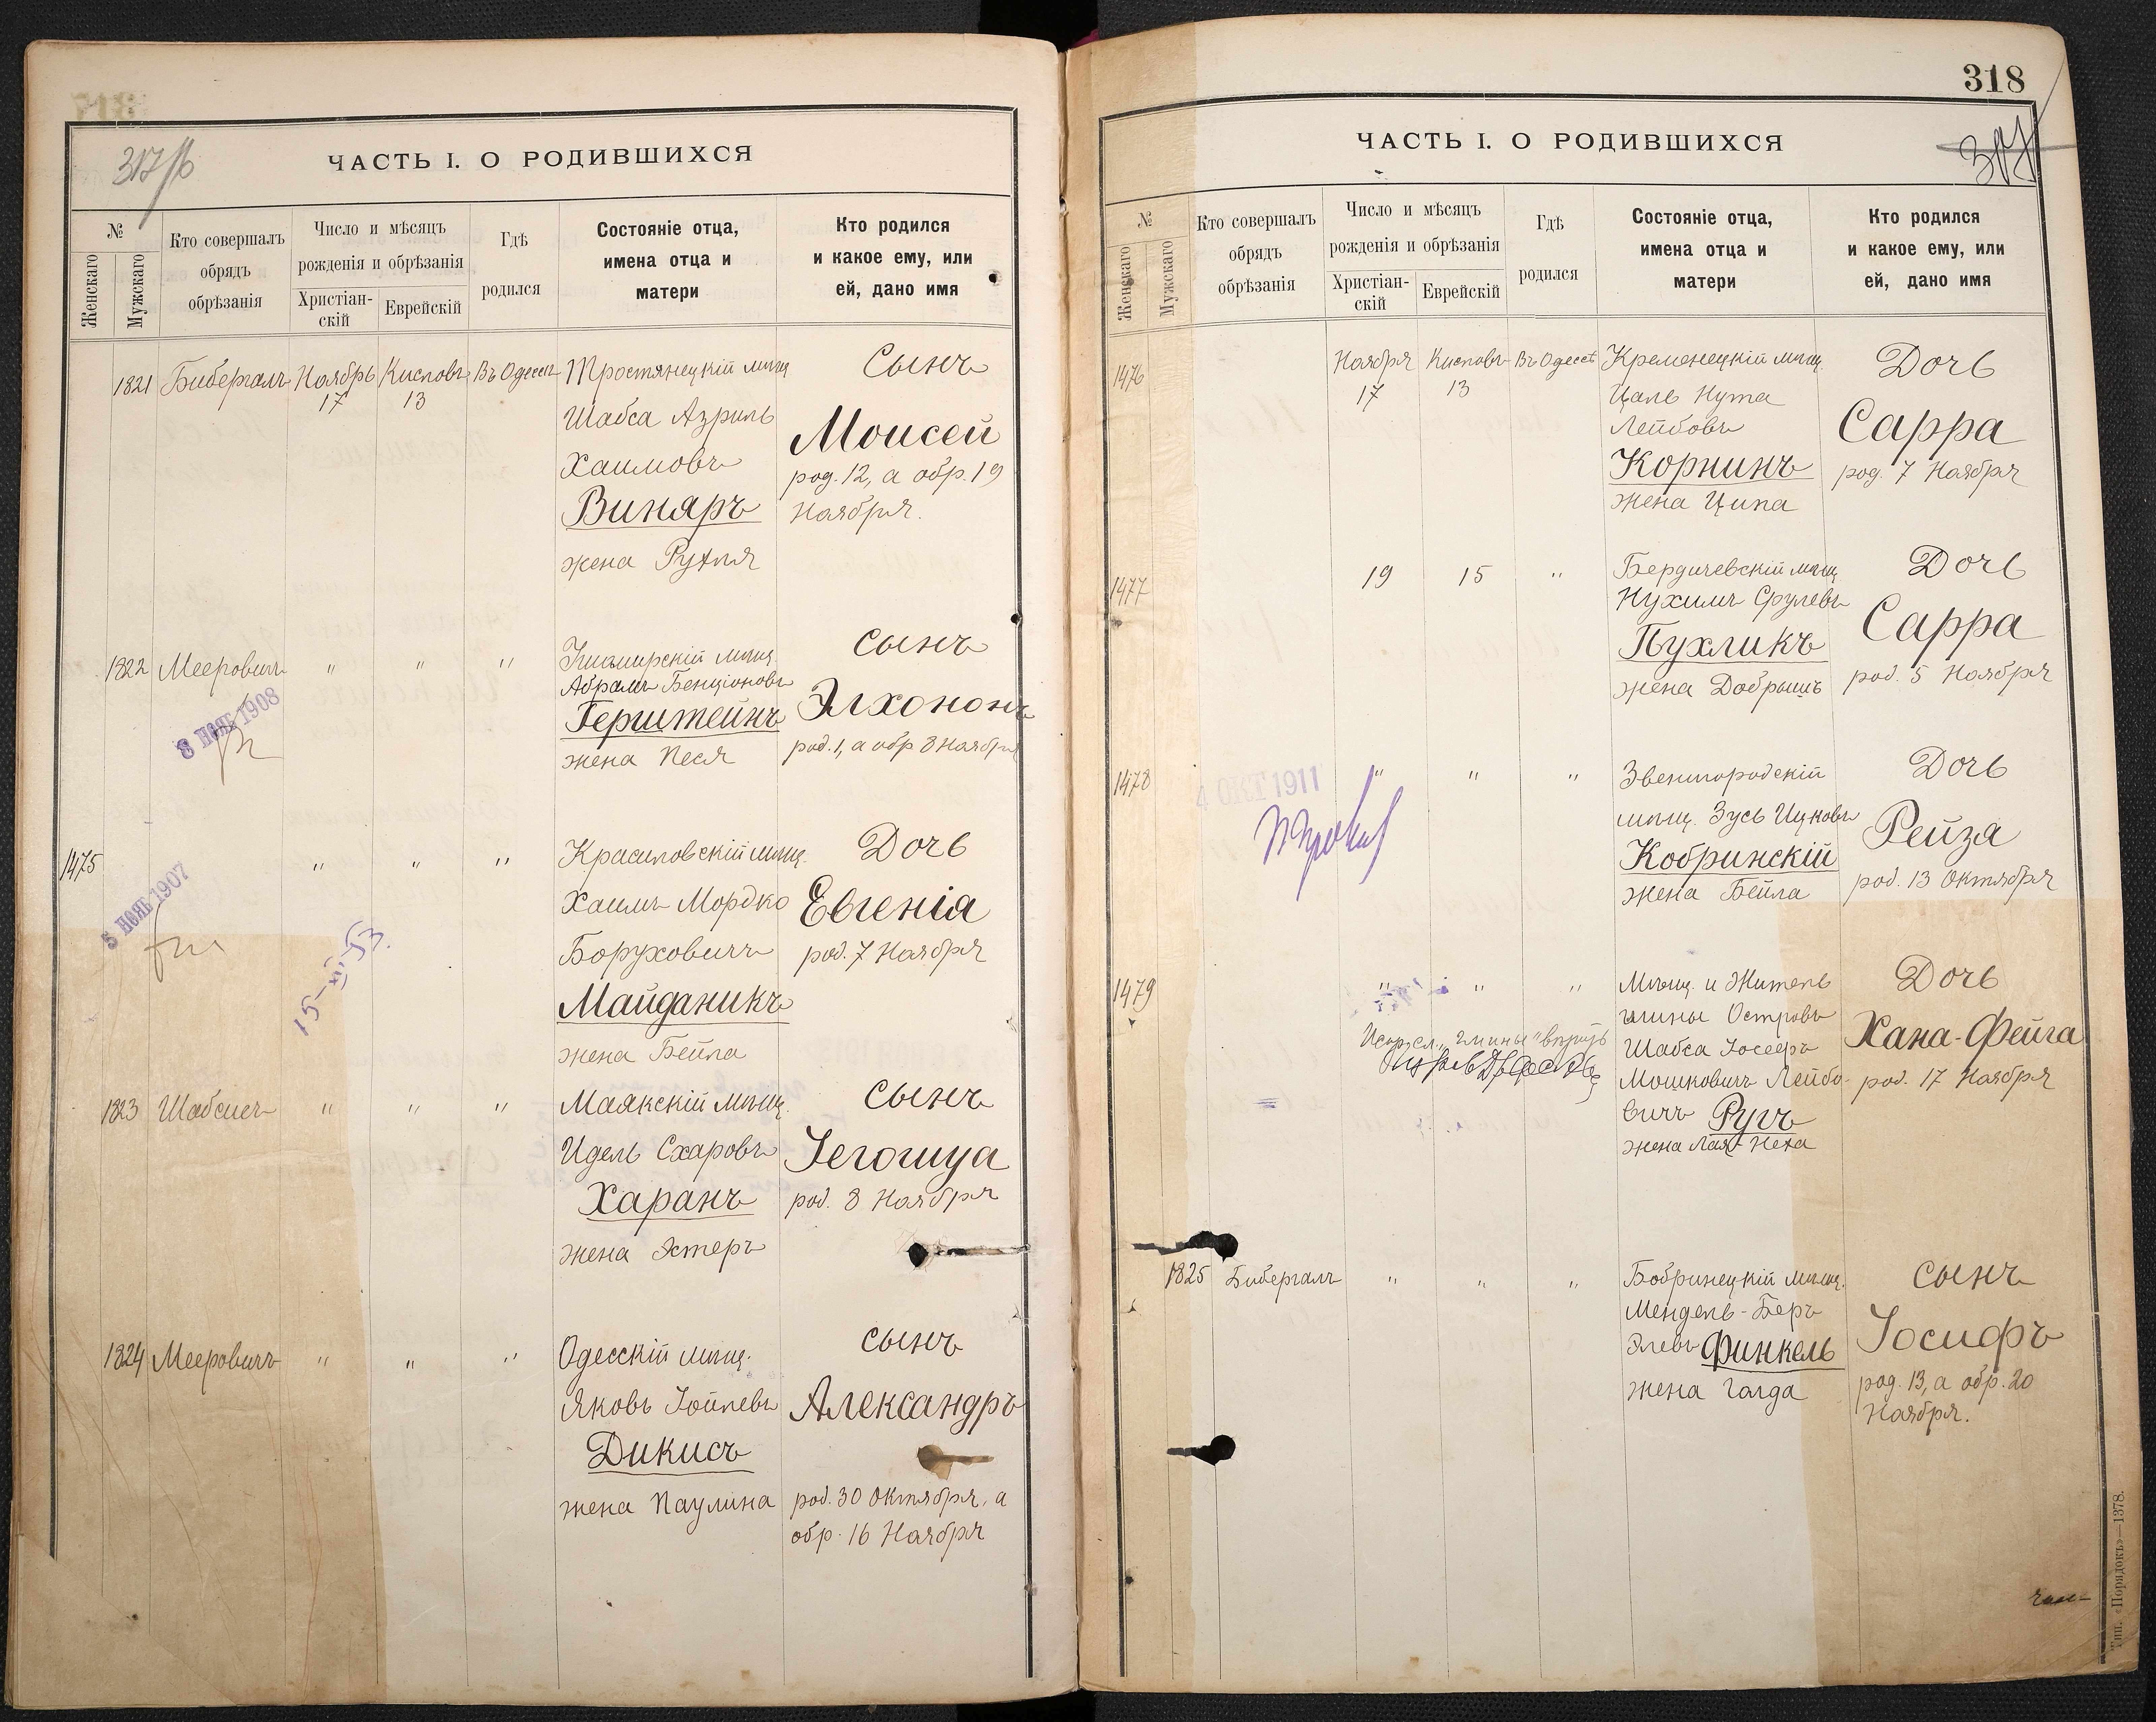 317/б
ЧАСТЬ I. О РОДИВШИХСЯ
№
Женскаго
Мужскаго
Кто совершалъ
обрядъ
обрѣзанія
Число и мѣсяцъ
рожденія и обрѣзанія
Христіан-
скій
Еврейскій
Гдѣ
родился
Состояніе отца,
имена отца и
матери
Кто родился
и какое ему, или
ей, дано имя
1821 Бибергалъ Ноябрь Кисловъ Въ Одессѣ Тростянецкій мѣщ Сынъ
17 13
Шабса Азриль
Моисей
Хаимовъ
род. 12, а обр. 19
Винаръ
Ноября.
жена Рухля
1822 Мееровичъ " " " мѣщ. Сынъ
Абрамъ Бенціоновъ
Элхононъ
Герштейнъ
жена Песя
род. 1, а обр 8 Ноября
8 НОЯБ 1908
1475 " " " Красиловскій мѣщ. Дочь
Хаимъ Мордко
Евгенія
Боруховичъ
род. 7 Ноября
Майданикъ
жена Бейла
5 НОЯБ 1907
15-XI-53.
1823 Шабсисъ " " " Маякскій мѣщ. Сынъ
Идель Схаровъ
Іегошуа
Харанъ
род. 8 Ноября
жена Эстеръ
1824 Мееровичъ " " " Одесскій мѣщ. Сынъ
Яковъ Іойлевъ
Александръ
Дикисъ
жена Паулина
род. 30 Октября, а
обр. 16 Ноября
318
317
ЧАСТЬ I. О РОДИВШИХСЯ
№
Женскаго
Мужскаго
Кто совершалъ
обрядъ
обрѣзанія
Число и мѣсяцъ
рожденія и обрѣзанія
Христіан-
скій
Еврейскій
Гдѣ
родился
Состояніе отца,
имена отца и
матери
Кто родился
и какое ему, или
ей, дано имя
1476 Ноября Кисловъ Въ Одессѣ Кременецкій мѣщ. Дочь
17 13
Цаль Нута
Лейбовъ
Сарра
Корнинъ
род. 7 Ноября
жена Ципа
1477 19 15 " Бердичевскій мѣщ Дочь
Нухимъ Срулевъ
Сарра
Пухликъ
жена Добрышъ
род. 5 Ноября
1478 " " " Звенигородскій Дочь
мѣщ. Зусь Ицковъ
Рейза
Кобринскій
жена Бейла
род. 13 Октября
4 ОКТ 1911
1479 " " " Мѣщ. и Житель Дочь
гмины Островъ
Хана-Фейга
Шабса Іосеръ
Мошковичъ Лейбо-
род. 17 Ноября
вичъ Ругъ
жена Лая-Неха
1825 Бибергалъ " " " Бобринецкій мѣщ. Сынъ
Мендель-Беръ
Іосифъ
Элевъ Финкель
жена Голда
род. 13, а обр. 20
Ноября.
Тип. «Порядокъ»—1378.